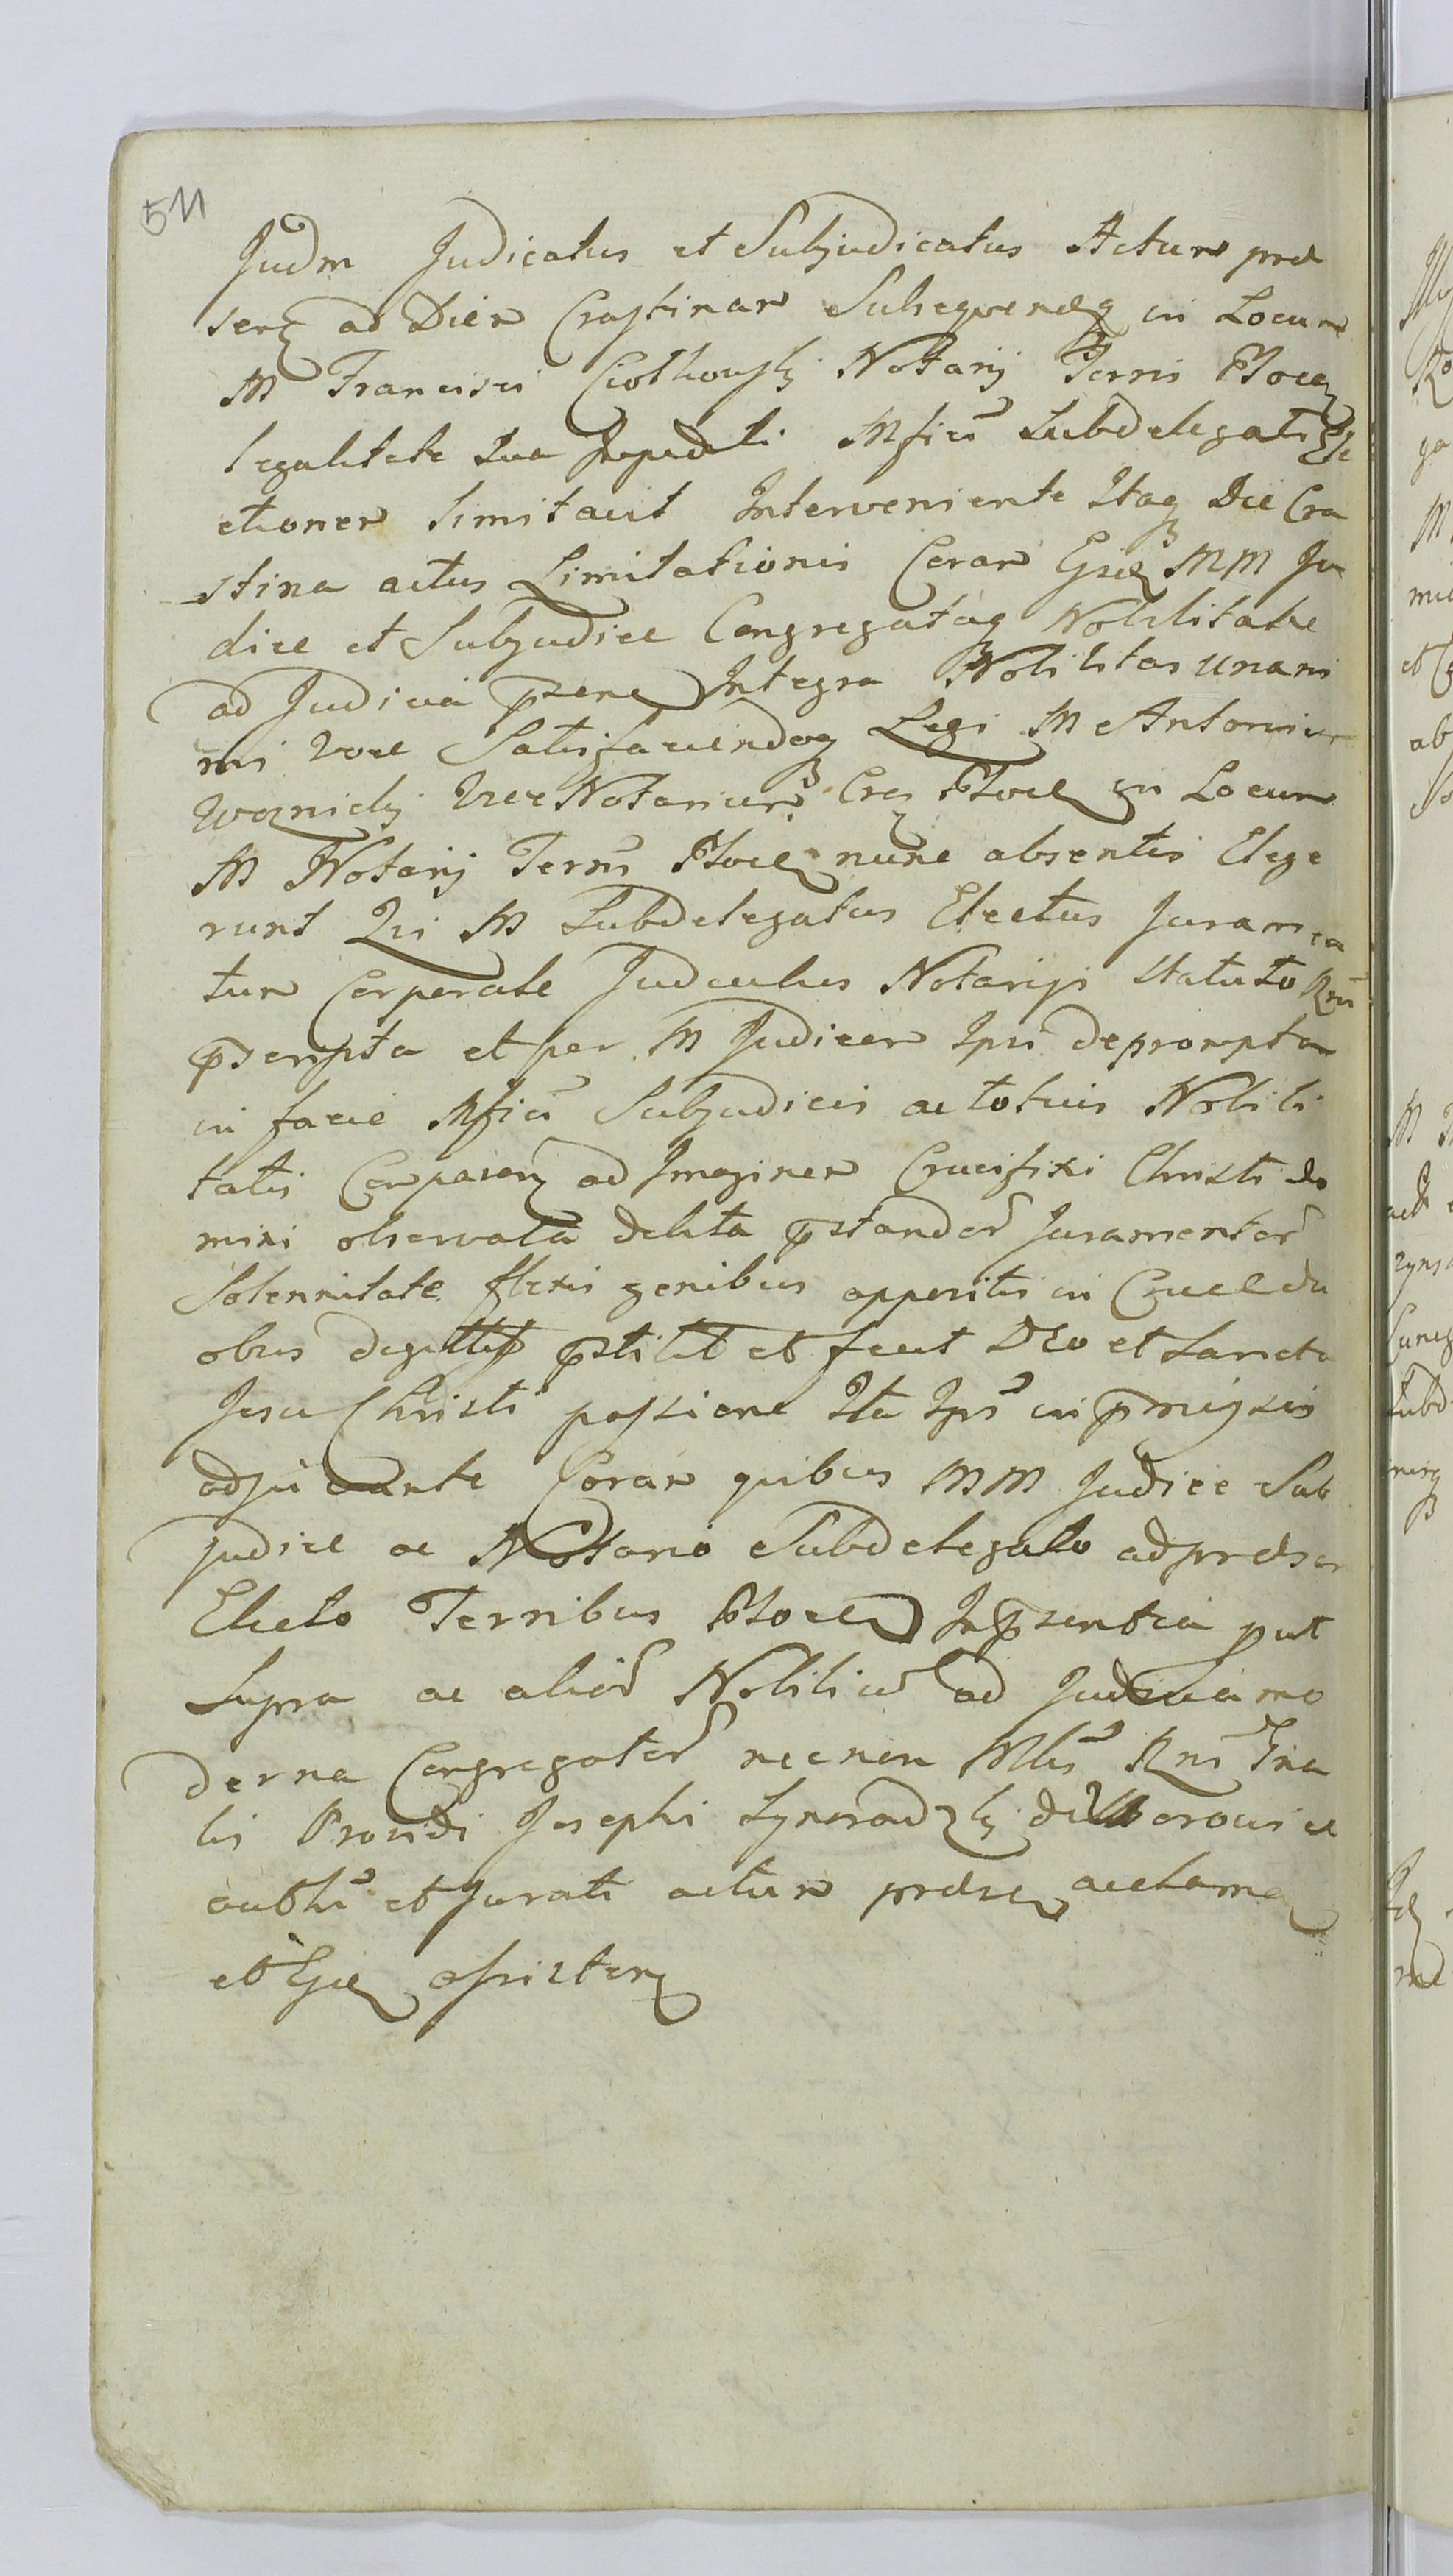 511
Judm Judicatus et Subjudicatus Actum præ
senz ad Diem Crastinam Subsequendq in Locum
M Francisci Ciolkowskj Notarij Terris Plocen
legalitate sua Impediti Mfici Subdelegati Ele
ctionem limitavit Interveniente Itaq Die Cra
stina actus Limitationis Coram Ejsd MM Ju
dice et Subjudice Congregataq Nobilitate
ad Judicia pzene Integra Nobilitas unani
mi voce Satisfaciendoq Legi M Antonium
Woznickj Vice Notarium Cren Plocen in Locum
M Notarij Terris Plocen nunc absentis Elege
runt Qui M Subdelegatus Electus Juramen
tum Corporale Judcibus Notarijs Statuto Rni
pscripta et per M Judicem Ipsi depromptam
in facie Mfici Subjudicis ac totius Nobili
tatis Comparen ad Imaginem Crucifixi Christi do
mini observata debita pstandor Juramentor
Solennitate flexis genibus appositis in Cruce du
obus degittis pstitit et fecit Deo et Sancta
Jesu Christi passione Ita Ipsi in pmissis
adjuvante Coram quibus MM Judice Sub
judice ac Notario Subdelegato ad præsen
Electo Terribus Plocen In psentia put
Supra ac alior Nobiliu ad Judicia mo
derna Congregator necnon Mlis Rni Gna
lis Providi Josephi Synoradzkj de
authi et Jurati actum præsen acclaman
et Ejsd assisten